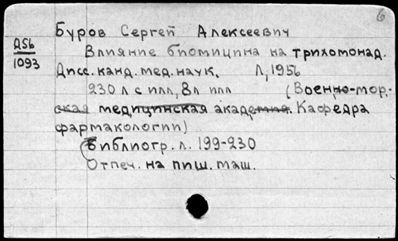 б
Буров Сергей Алексеевич
Д56
1093
Влияние биомицина на трихомонад.
Дисс. канд. мед. наук. Л, 1956
230 л с илл, 8 л илл (Военно-мор-
ская медицинская академия. Кафедра
фармакологии)
Библиогр. л. 199-230
Отпеч. на пиш. маш.